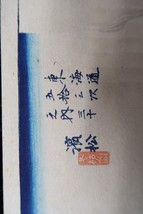 東海道
五拾三次
之内
濱松